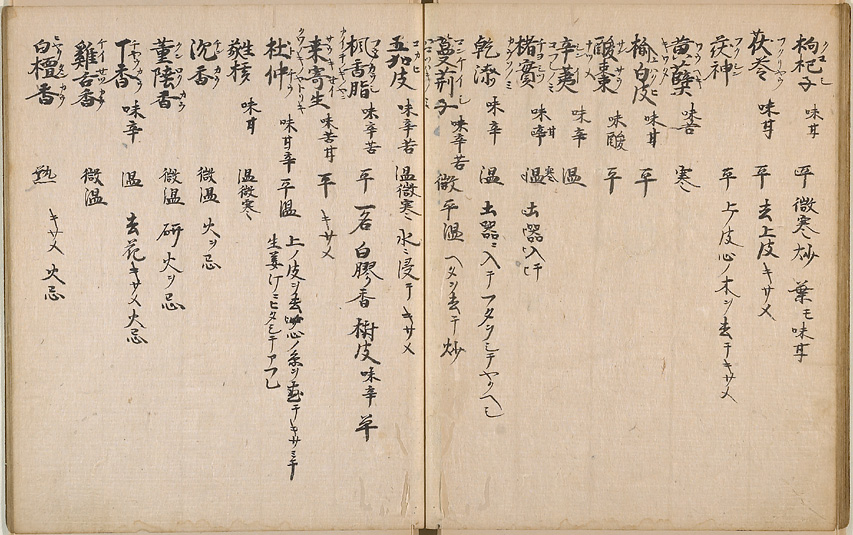 枸杞子 味甘 平 微寒 炒 葉モ味甘
茯苓 味甘 平 去上皮 キサメ
茯神 平 上ノ皮心ノ木ヲ去テキサメ
黄蘗 味苦 寒
楡白皮 味甘 平
酸棗 味酸 平
辛夷 味辛 温
楮實 味甘 寒 土器ニ入テ
乾漆 味辛 温 土器ニ入テフタヲシテヤクヘシ
蔓荊子 味辛苦 微 平温 ヘタヲ去テ炒
五加皮 味辛苦 温微寒 水ニ浸テキサメ
楓香脂 味辛苦 平 一名白膠香 樹皮味辛 平
桑寄生 味苦甘 平 キサメ
杜仲 味甘辛 平温 上ノ皮ヲ去 心ノ糸ヲ テ
生姜 ヒタシテアフル
味甘 温微寒
沉香 微温 火ヲ忌
薫陸香 微温 研 火ヲ忌
丁香 味辛 温 去花キサメ 火忌
雞舌香 微温
白檀香 熱 キサメ 火忌